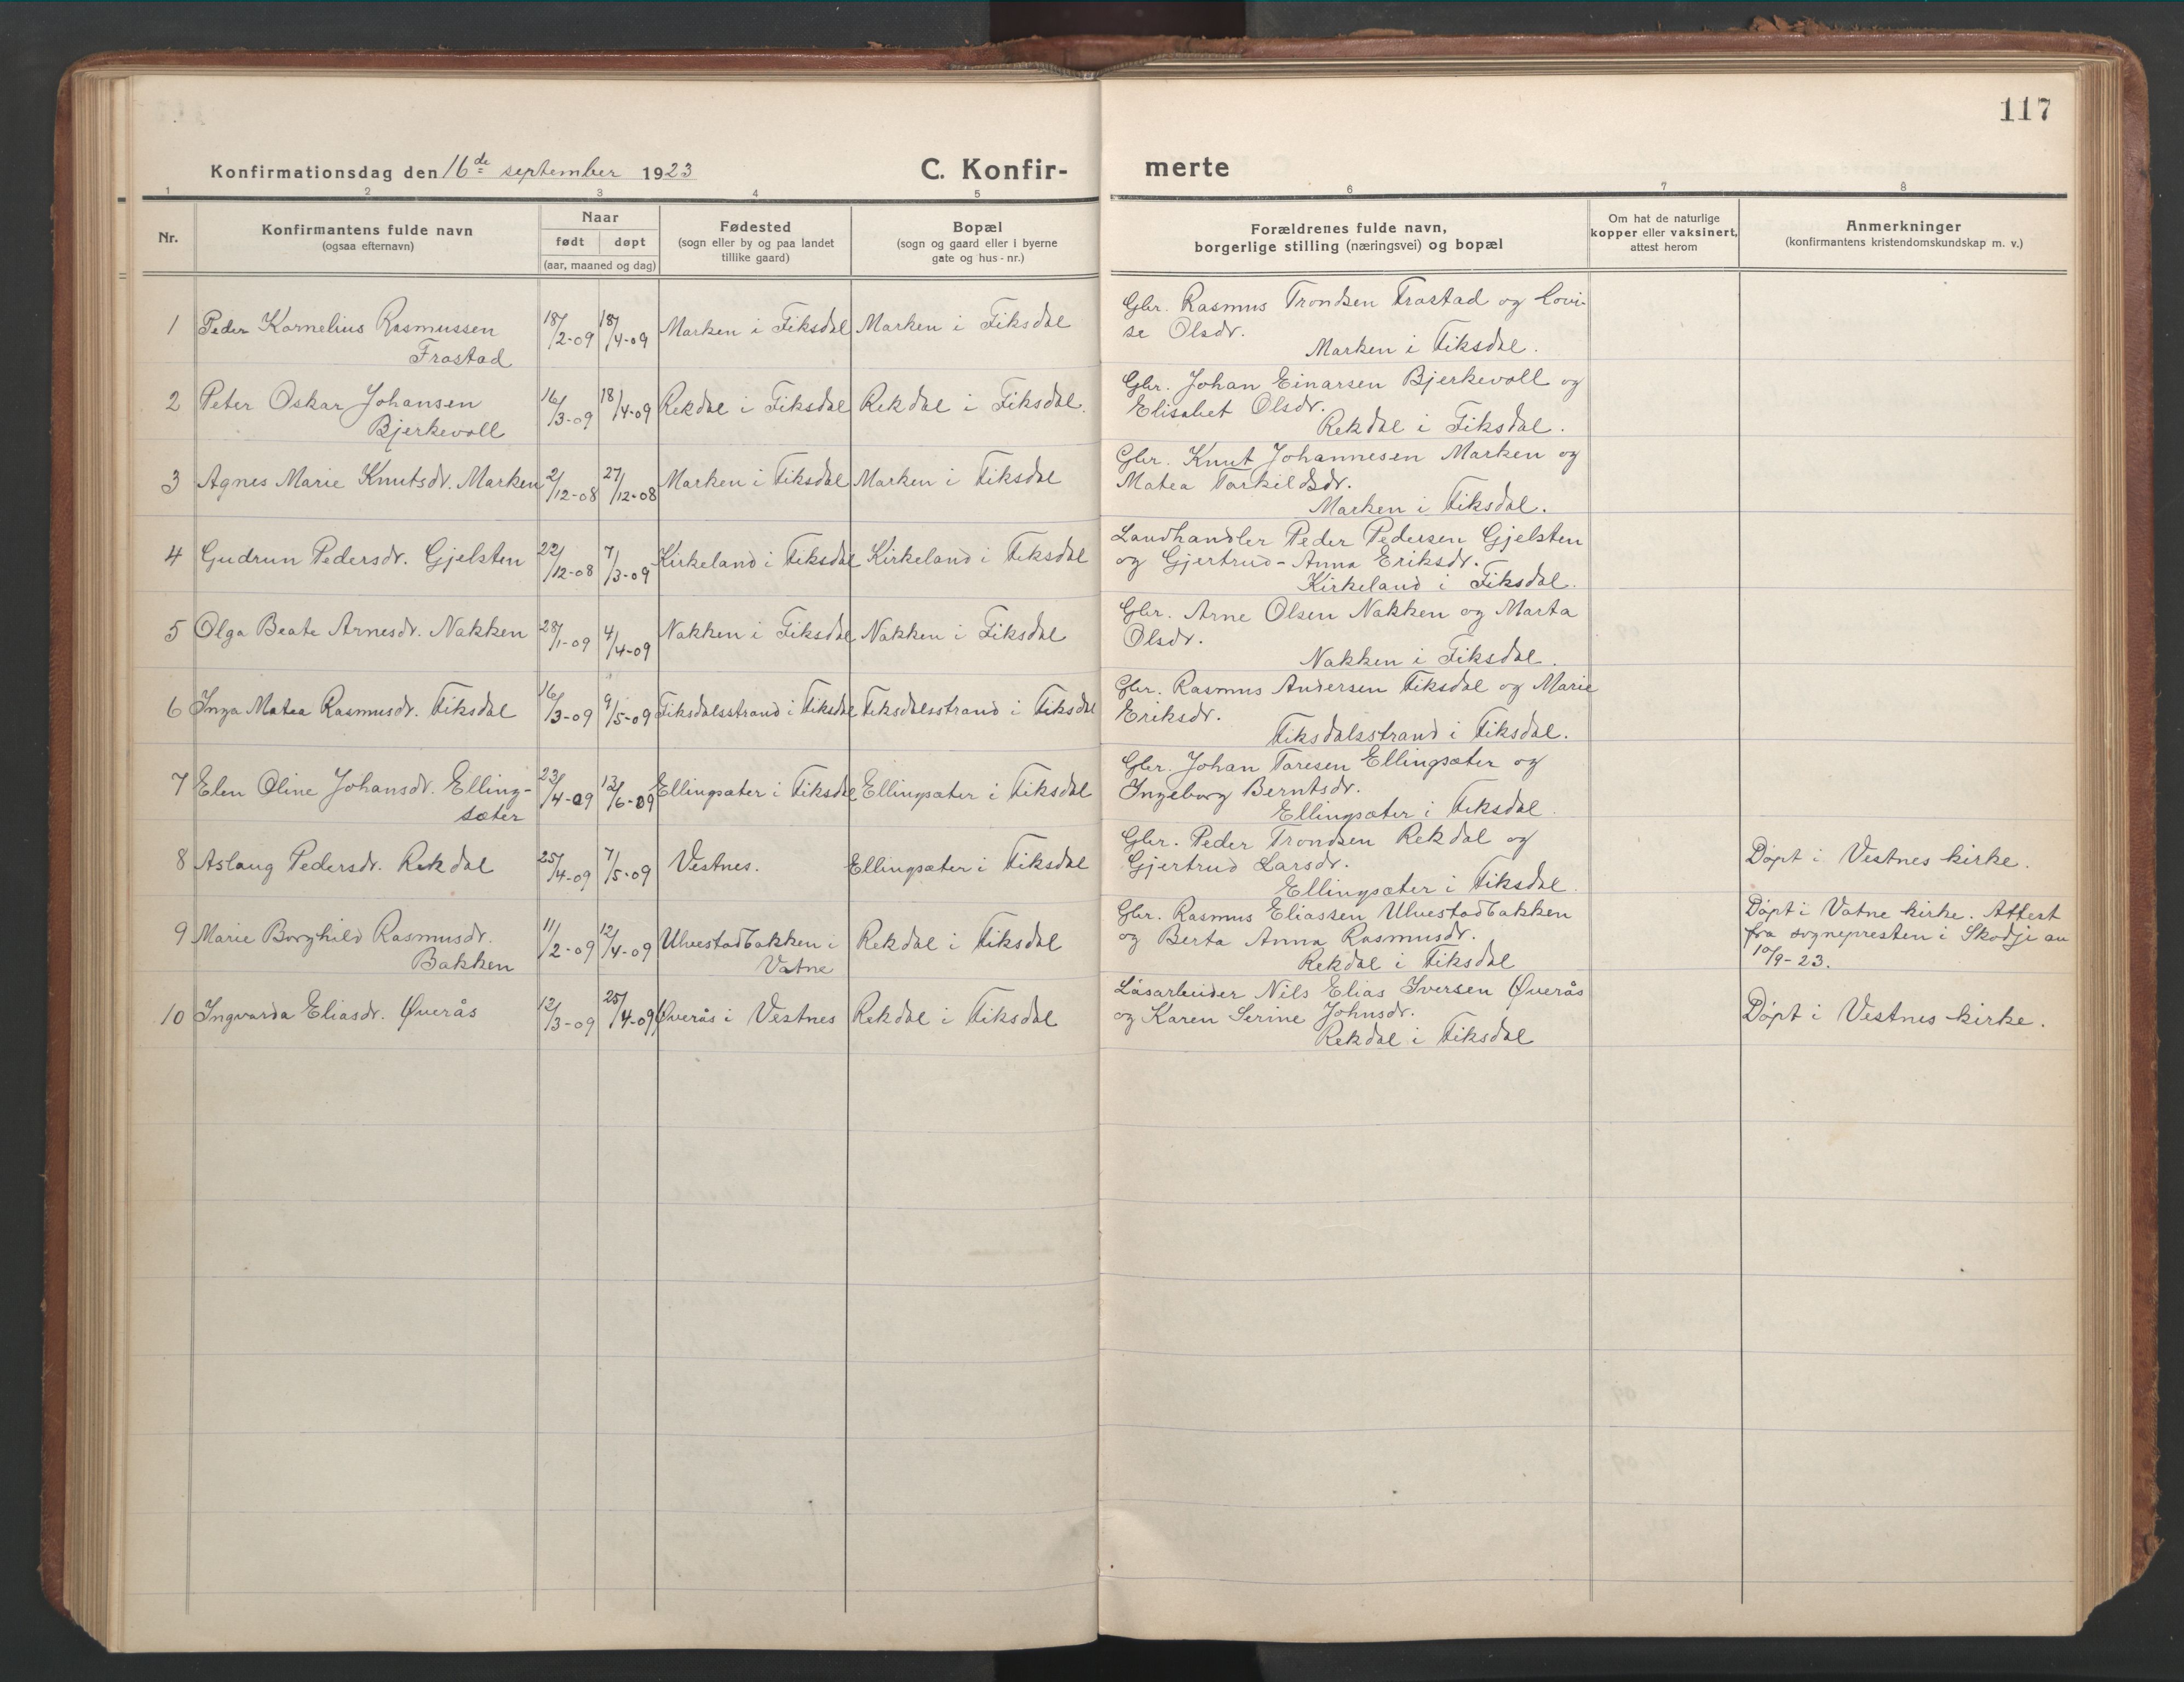 117
Konfirmationsdag den 16de september 1923
C. Konfirmerte
1 2 3 4 5 6 7 8
Nr.
Konfirmantens fulde navn
(ogsaa efternavn)
Naar
født døpt
(aar, maaned og dag)
Fødested
(sogn eller by og paa landet
tillike gaard)
Bopæl
(sogn og gaard eller i byerne
gate og hus-nr.)
Forældrenes fulde navn,
borgerlige stilling (næringsvei) og bopæl
Om hat de naturlige
kopper eller vaksinert,
attest herom
Anmerkninger
(konfirmantens kristendomskundskap m. v.)
1 Peder Kornelius Rasmussen
Frostad
18/2-09 18/4-09 Marken i Fiksdal Marken i Fiksdal
Gbr. Rasmus Trondsen Frostad og Lovi-
se Olsdr.
Marken i Fiksdal.
2 Peter Oskar Johansen
Bjerkevoll
16/3-09 18/4-09 Rekdal i Fiksdal Rekdal i Fiksdal.
Gbr. Johan Einarsen Bjerkevoll og
Elisabet Olsdr.
Rekdal i Fiksdal.
3 Agnes Marie Knutsdr. Marken 2/12-08 27/12-08 Marken i Fiksdal Marken i Fiksdal
Gbr. Knut Johannesen Marken og
Matea Torkildsdr.
Marken i Fiksdal.
4 Gudrun Pedersdr. Gjelsten 22/12-08 7/3-09 Kirkeland i Fiksdal Kirkeland i Fiksdal
Landhandler Peder Pedersen Gjelsten
og Gjertrud-Anna Eriksdr.
Kirkeland i Fiksdal.
5 Olga Beate Arnesdr. Nakken 28/1-09 4/4-09 Nakken i Fiksdal Nakken i Fiksdal
Gbr. Arne Olsen Nakken og Marta
Olsdr.
Nakken i Fiksdal.
6 Inga Matea Rasmusdr. Fiksdal 16/3-09 9/5-09 Fiksdalsstrand i Fiksdal Fiksdalsstrand i Fiksdal
Gbr. Rasmus Andersen Fiksdal og Marie
Eriksdr.
Fiksdalsstrand i Fiksdal.
7 Elen Oline Johansdr. Elling-
sæter
23/4-09 13/6-09 Ellingsæter i Fiksdal Ellingsæter i Fiksdal
Gbr. Johan Toresen Ellingsæter og
Ingeborg Berntsdr.
Ellingsæter i Fiksdal.
8 Aslaug Pedersdr. Rekdal 25/4-09 7/5-09 Vestnes. Ellingsæter i Fiksdal
Gbr. Peder Trondsen Rekdal og
Gjertrud Larsdr.
Ellingsæter i Fiksdal.
Døpt i Vestnes kirke.
9 Marie Borghild Rasmusdr.
Bakken
11/2-09 12/4-09 Ulvestadbakken i
Vatne
Rekdal i Fiksdal
Gbr. Rasmus Eliassen Ulvestadbakken
og Berta Anna Rasmusdr.
Rekdal i Fiksdal
Døpt i Vatne kirke. Attest
fra sognepresten i Skodje av
10/9-23.
10 Ingvarda Eliasdr. Øverås 12/3-09 25/4-09 Øverås i Vestnes Rekdal i Fiksdal
Løsarbeider Nils Elias Iversen Øverås
og Karen Serine Johnsdr.
Rekdal i Fiksdal
Døpt i Vestnes kirke.